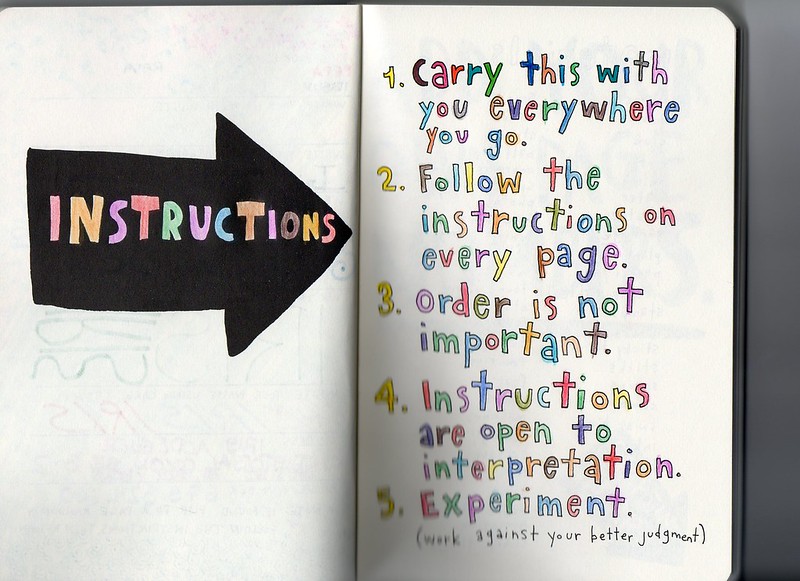 INSTRUCTIONS
1. Carry this with
you everywhere
you go.
2. Follow the
instructions on
every page.
3. Order is not
important.
4. Instructions
are open to
interpretation.
5. Experiment.
(work against your better judgment)